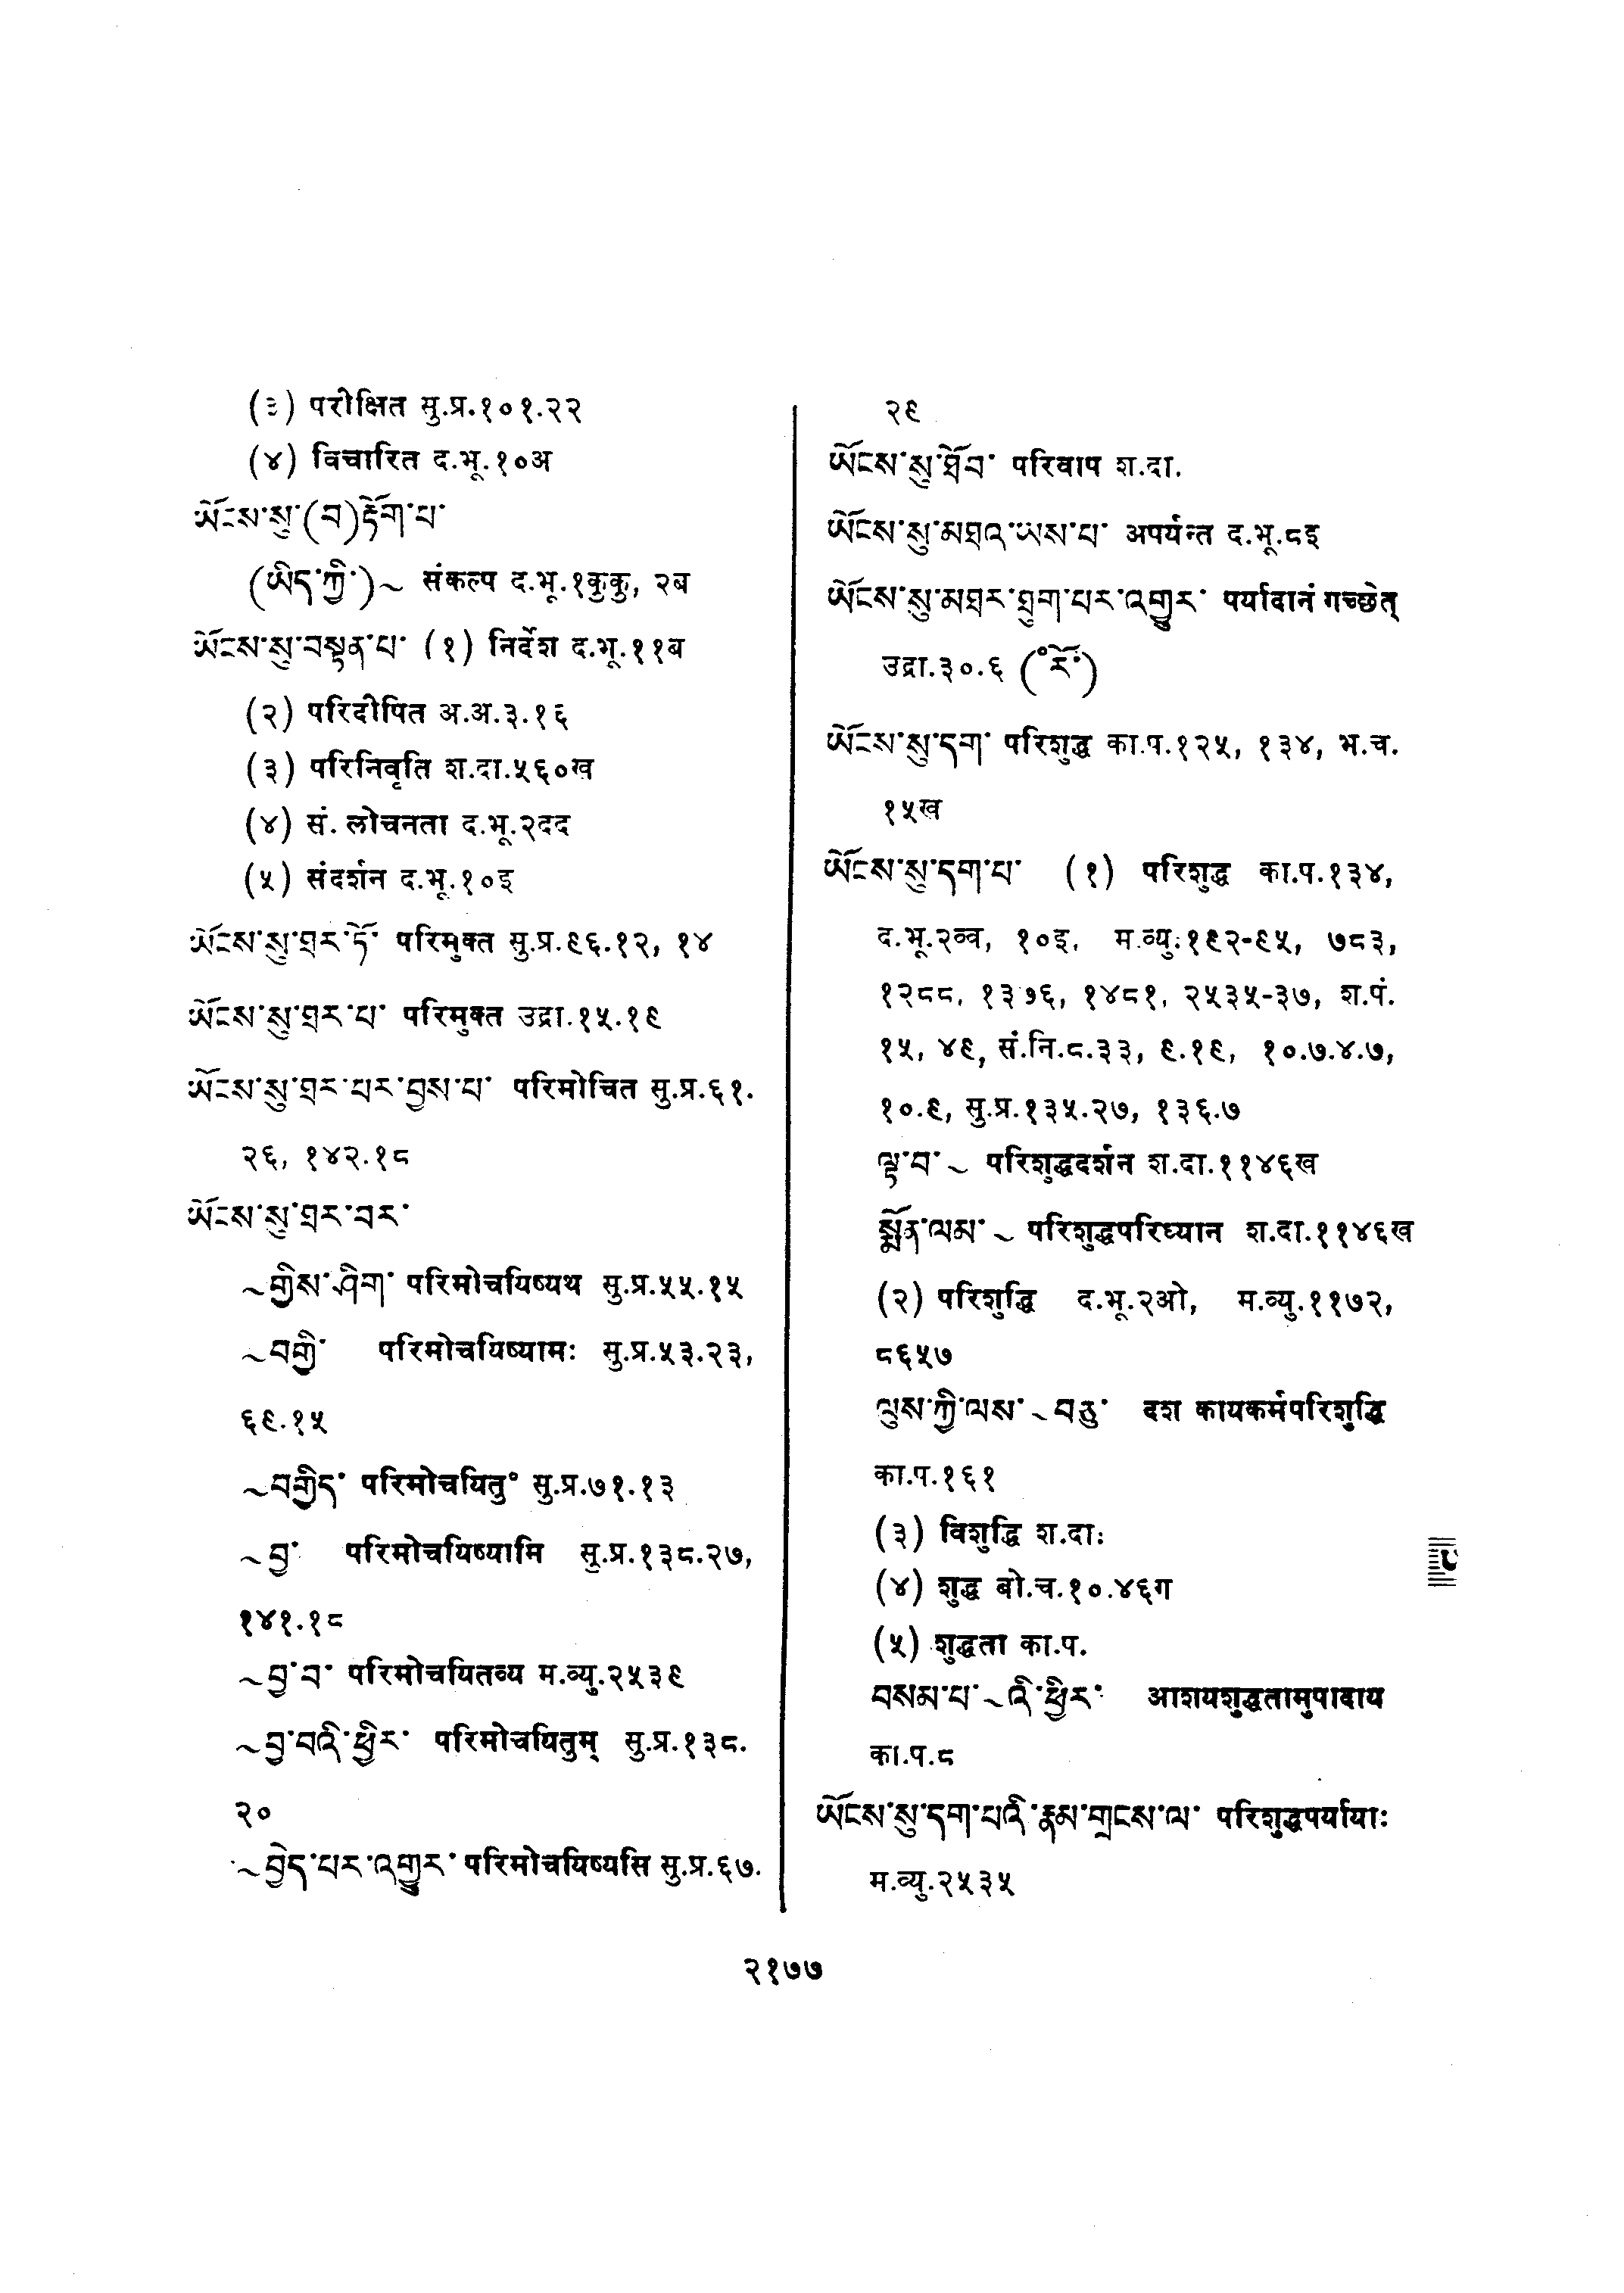 (३) परीक्षित सु.प्र.१०१.२२
(४) विचारित द.भू.१०अ
ཡོངས་སུ་(བ)རྟོག་པ་
(ཡིད་ཀྱི་)~ संकल्प द.भू.१कुकु, २ब
ཡོངས་སུ་བསྟན་པ་ (१) निर्देश द.भू.११ब
(२) परिदीपित अ.अ.३.१६
(३) परिनिवृति श.दा.५६०ख
(४) सं. लोचनता द.भू.२दद
(५) संदर्शन द.भू.१०इ
ཡོངས་སུ་ཐར་ཏོ་ परिमुक्त सु.प्र.९६.१२, १४
ཡོངས་སུ་ཐར་པ་ परिमुक्त उद्रा.१५.१९
ཡོངས་སུ་ཐར་པར་བྱས་པ་ परिमोचित सु.प्र.६१.
२६, १४२.१८
ཡོངས་སུ་ཐར་བར་
~གྱིས་ཤིག་ परिमोचयिष्यथ सु.प्र.५५.१५
~བགྱི་ परिमोचयिष्यामः सु.प्र.५३.२३,
६९.१५
~བགྱིད་ परिमोचयितु° सु.प्र.७१.१३
~བྱ་ परिमोचयिष्यामि सु.प्र.१३८.२७,
१४१.१८
~བྱ་བ་ परिमोचयितव्य म.व्यु.२५३९
~བྱ་བའི་ཕྱིར་ परिमोचयितुम् सु.प्र.१३८.
२०
~བྱེད་པར་འགྱུར་ परिमोचयिष्यसि सु.प्र.६७.
२९
ཡོངས་སུ་ཐོབ་ परिवाप श.दा.
ཡོངས་སུ་མཐའ་ཡས་པ་ अपर्यन्त द.भू.८इ
ཡོངས་སུ་མཐར་ཐུག་པར་འགྱུར་ पर्यादानं गच्छेत्
उद्रा.३०.६ (°རོ་)
ཡོངས་སུ་དག་ परिशुद्ध का.प.१२५, १३४, भ.च.
१५ख
ཡོངས་སུ་དག་པ་ (१) परिशुद्ध का.प.१३४,
द.भू.२व्व, १०इ, म.व्यु.१९२-९५, ७८३,
१२८८, १३७६, १४८१, २५३५-३७, श.पं.
१५, ४९, सं.नि.८.३३, ९.१९, १०.७.४.७,
१०.९, सु.प्र.१३५.२७, १३६.७
ལྟ་བ་~ परिशुद्धदर्शन श.दा.११४६ख
སྨོན་ལམ་~ परिशुद्धपरिध्यान श.दा.११४६ख
(२) परिशुद्धि द.भू.२ओ, म.व्यु.११७२,
८६५७
ལུས་ཀྱི་ལས་~བཅུ་ दश कायकर्मपरिशुद्धि
का.प.१६१
(३) विशुद्धि श.दा.
(४) शुद्ध बो.च.१०.४६ग
(५) शुद्धता का.प.
བསམ་པ་~འི་ཕྱིར་ आशयशुद्धतामुपादाय
का.प.८
ཡོངས་སུ་དག་པའི་རྣམ་གྲངས་ལ་ परिशुद्धपर्यायाः
म.व्यु.२५३५
२१७७